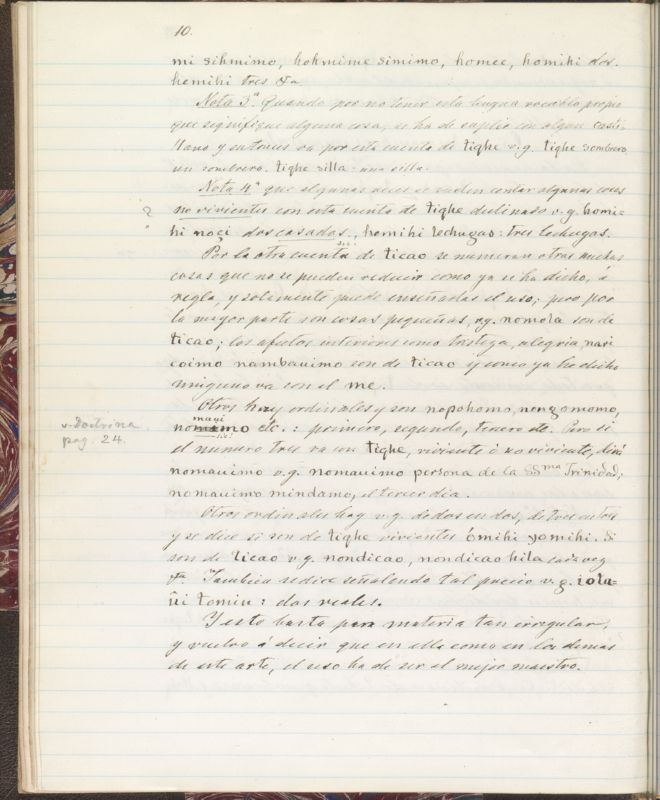 10.
mi sihmimo, hohmime simimo, homee, homihi dos.
hemihi tres &a.
Nota 3ª. Quando por no tener esta lengua vocablo propio
que signifique alguna cosa, se ha de suplir con algun casti-
llano y entonces va por esta cuenta de tighe v.g. tighe sombrero
un sombrero. tighe silla: una silla.
Nota 4ª que algunas veces se suelen contar algunas cosas
? no vivientes con esta cuenta de tighe declinado v.g. homi-
hi noçi dos casados, homihi lechugas: tres lechugas.
sic
Por la otra cuenta de ticao se numeran otras muchas
cosas que no se pueden reducir como ya se ha dicho, á
regla, y solamente puede enseñadas el uso; pero por
la mayor parte son cosas pequeñas, v.g. nomola son de
ticao; los afectos interiores como tristeza, alegria, nari
coimo nambauimo son de ticao y como ya he dicho
ninguno va con el me.
Otros hay ordinales y son nopohomo, nongomomo,
maui
v. Doctrina nomamo etc.: primero, segundo, tercero etc. Pero si
sic!
pag. 24. el numero tres va con tighe, viviente ó no viviente, dirá
nomauimo v.g. nomauimo persona de la SSma Trinidad;
nomauimo mindamo, el tercer dia.
Otros ordinales hay v.g. de dos en dos, de tres en tres
y se dice si son de tighe vivientes ómihi yomihi. Si
son de ticao v.g. nondicao, nondicao hila cada vez
&a. Tambien se dice señalando tal precio v.g. iola-
ñi tomin: dos reales.
Y esto basta para materia tan irregular,
y vuelvo á decir que en ella como en los demas
de este arte, el uso ha de ser el mejor maestro.